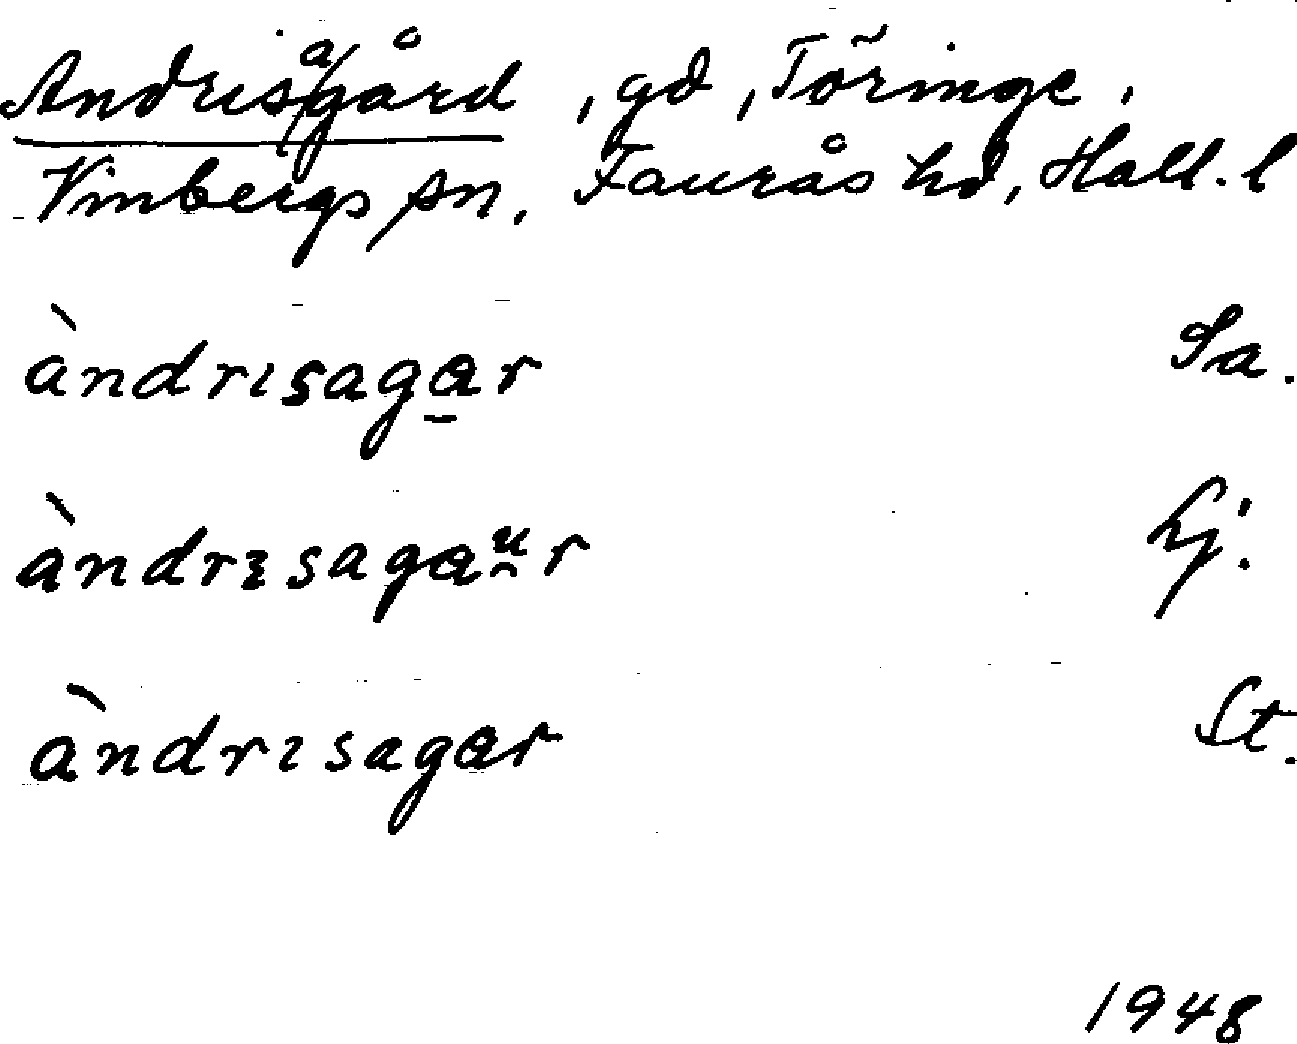 Andrisagård, gd, Töringe,
Vinbergs sn, Faurås hd, Hall. l
àndrɩsagar Sa.
àndrɛsagaur Hj.
àndrɩsagar St.
1948